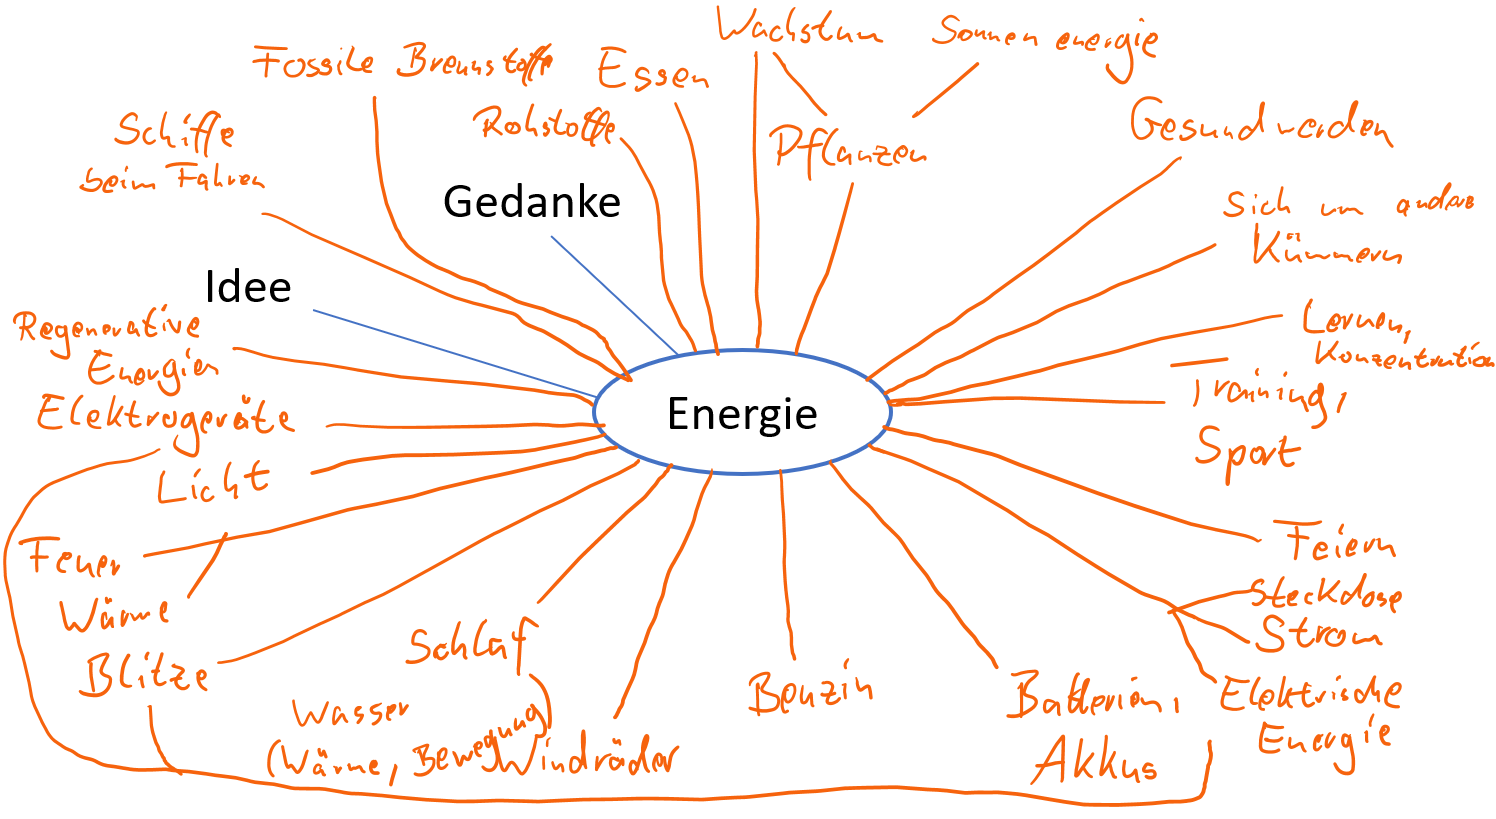 Wachstum
Sonnenenergie
Fossile Brennstoffe
Essen
Rohstoffe
Pflanzen
Gesund werden
Schiffe
beim Fahren
Gedanke
Sich um andere
Kümmern
Idee
Regenerative
Energien
Lernen,
Konzentration
Elektrogeräte
Energie
Training,
Sport
Licht
Feuer
Wärme
Feiern
Steckdose
Strom
Blitze
Schlaf
Benzin
Batterien,
Akkus
Elektrische
Energie
Wasser
(Wärme, Bewegung)
Windräder